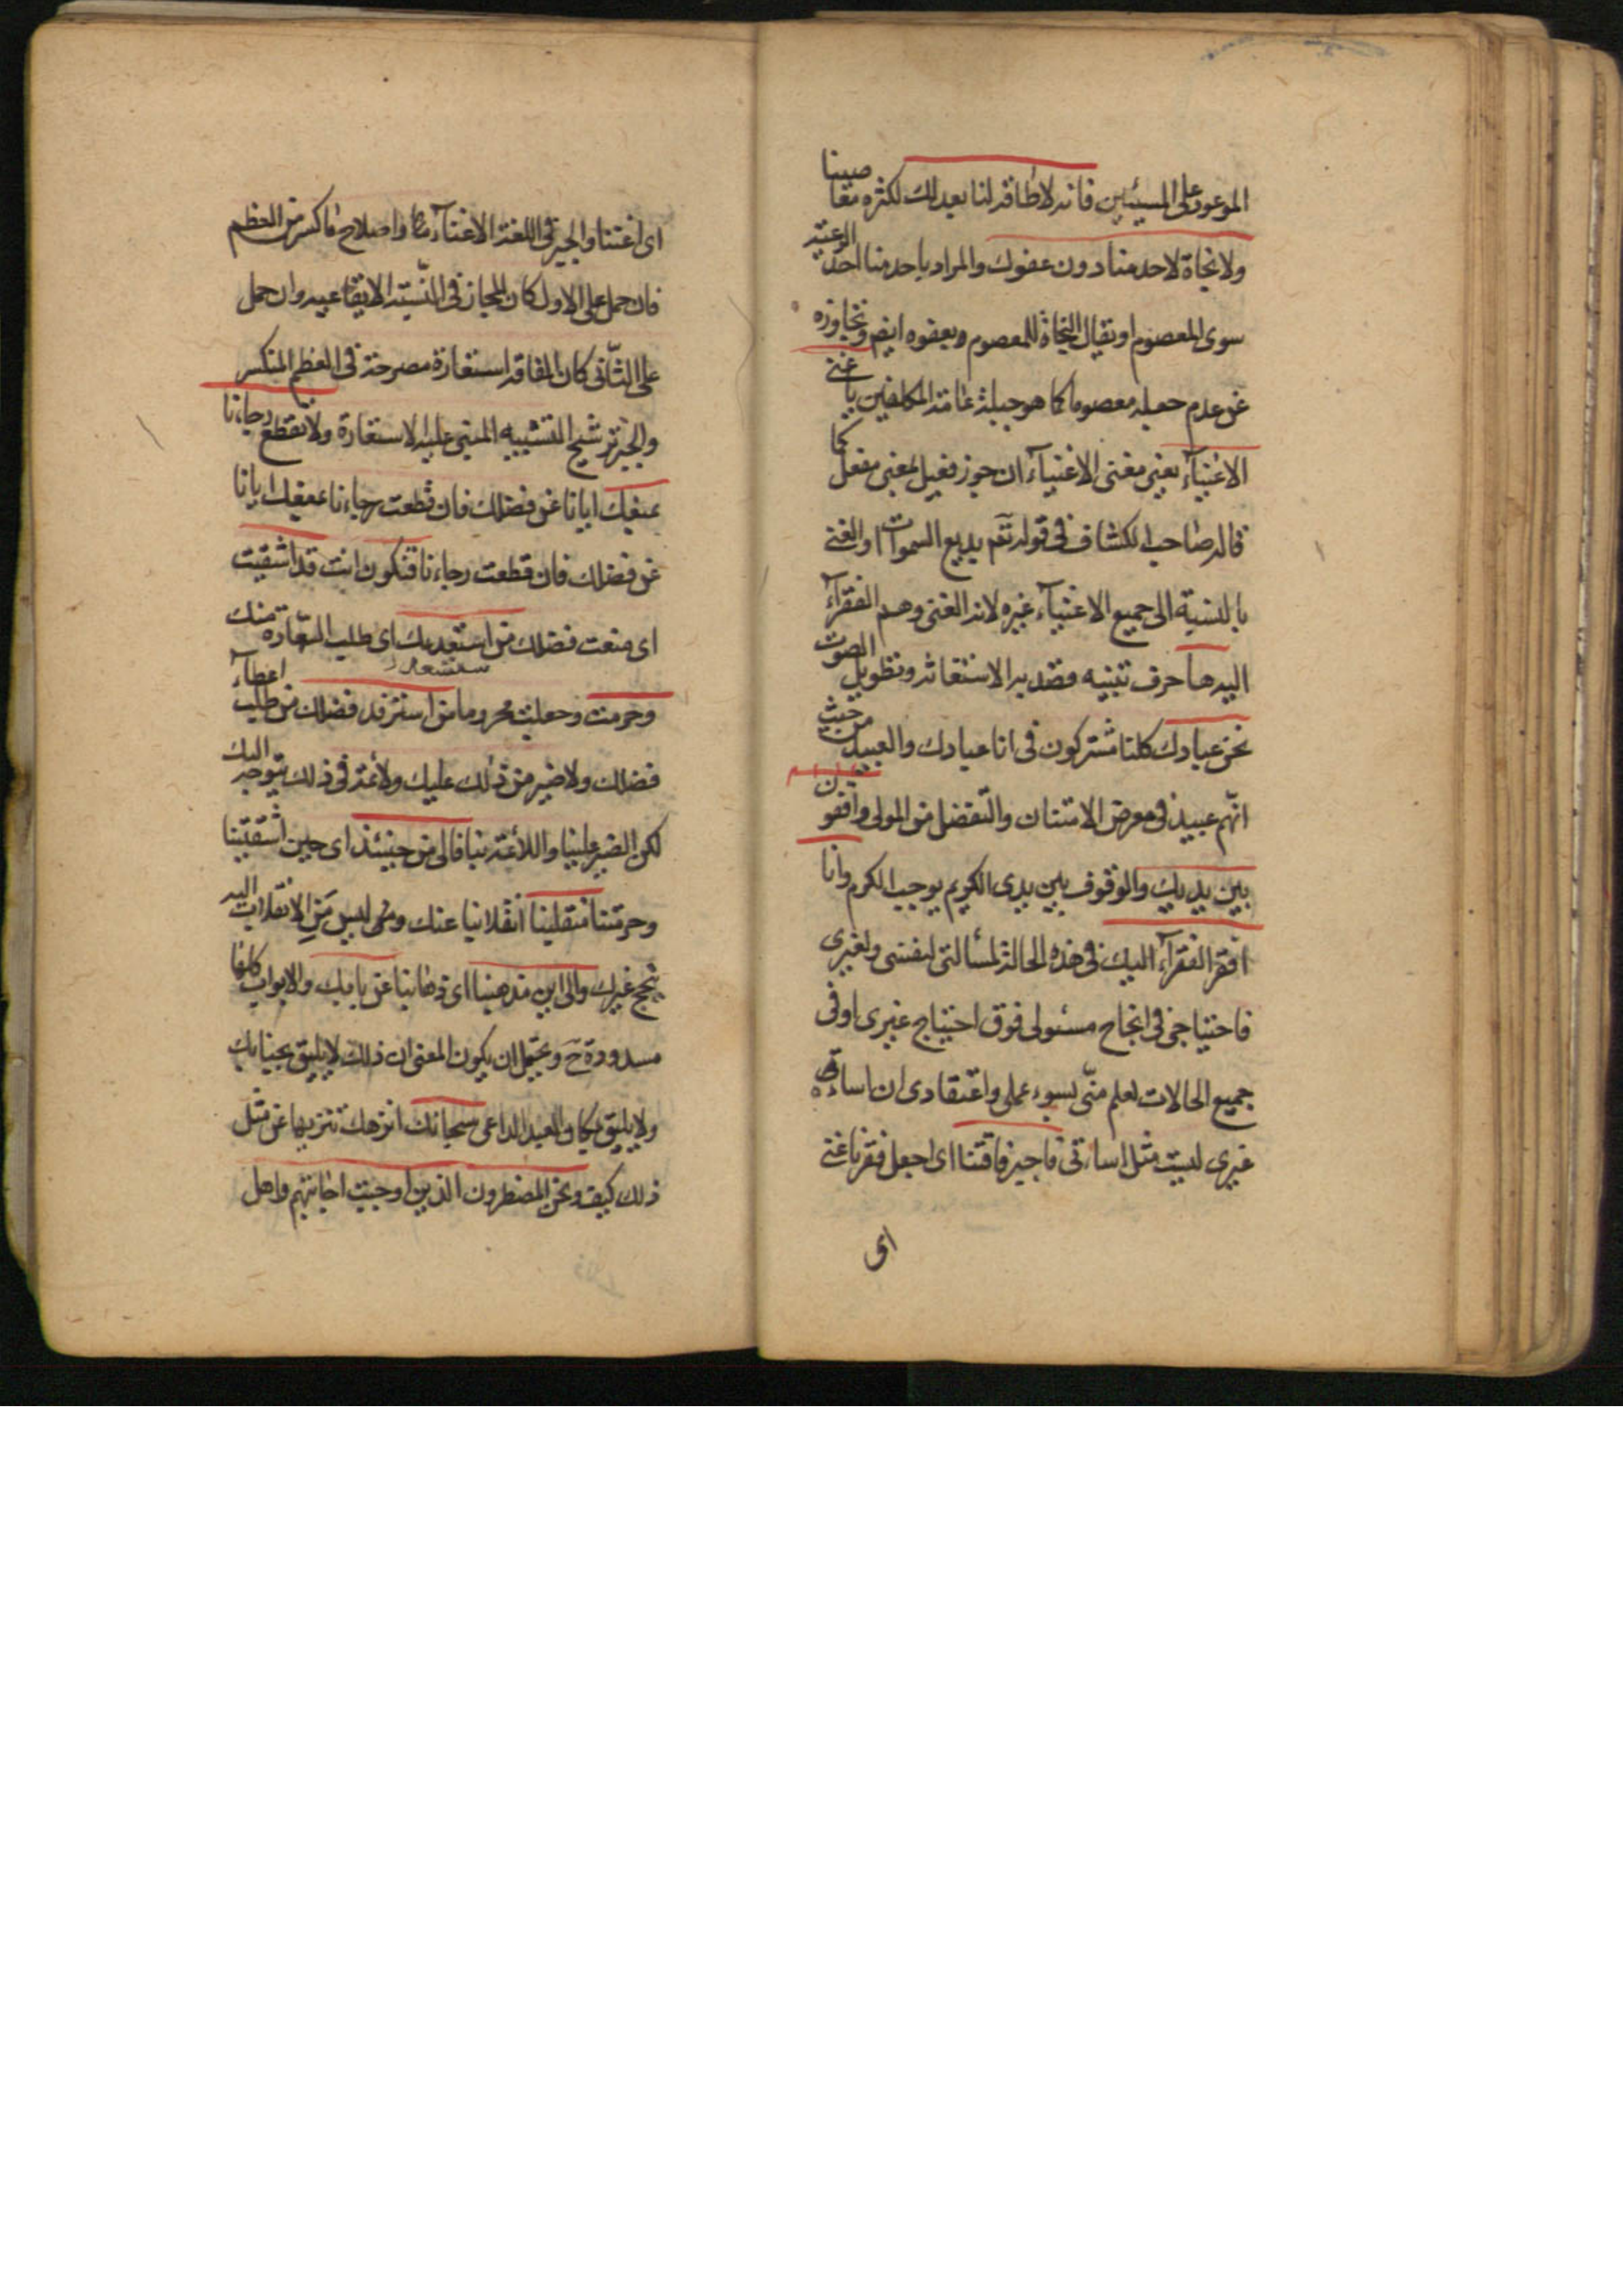 الموعود على المسيئين فانه لا طاقة لنا بعدلك لكثرة معاصينا
ولا نجاة لاحد منا دون عفوك والمراد باحد منا احد الرعية
سوى المعصوم او يقال النجاة للمعصوم وبعفوه ايض وتجاوزه
عن عدم جعله معصوما كما هو جبلة عامة المكلفين يا غنى
الاغنياء يعنى مغنى الاغنياء ان جوز فعيل بمعنى مفعل كما
قاله صاحب الكشاف فى قوله تعم بديع السموات او الغنى
بالنسبة الى جميع الاغنياء غيره لانه الغنى وهم الفقرآء
اليه ها حرف تنبيه فقد به الاستغاثة وتطويل الصوت
نحن عبادك كلنا مشتركون فى انا عبادك والعبيد من حيث
انهم عبيد فى معرض الامتنان والتفضل من المولى واقفون
بين يديك والوقوف بين يدى الكريم يوجب الكرم وانا
افقر الفقرآء اليك فى هذه الحالة لمسألتى لنفسى ولغيرى
فاحتياجى فى انجاح مسئولى فوق احتياج غيرى او فى
جميع الحالات لعلم منى بسوء عملى واعتقادى ان اساءة
غيرى ليست مثل اساءتى فاجبر فاقتنا اى اجعل فقرنا غنى
اى
اى اغننا والجبر فى اللغة الاغنآء واصلاح ما كسر من العظم
فان حمل على الاول كان المجاز فى النسبة الايقاعيه وان حمل
على الثانى كان الفاقة استعارة مصرحة فى العظم المنكسر
والجبر ترشيح التشبيه المبنى عليه الاستعارة ولا تقطع رجاءنا
بمنعك ايانا عن فضلك فان قطعت رجاءنا بمنعك ايانا
عن فضلك فان قطعت رجاءنا فتكون انت قد اشقيت
اى منعت فضلك من استسعد بك اى طلب السعادة منك
وحرمت وجعلت محروما من استرفد فضلك من طلب اعطآء
فضلك ولا ضير من ذلك عليك ولا ئمة فى ذلك يتوجه اليك
لكن الضير علينا واللائمة بنا فالى من حينئذ اى حين اشقيتنا
وحرمتنا منقلبنا انقلابنا عنك ومن ليس من الانقلاب اليه
ينجح غيرك والى اين مذهبنا اى ذهابنا عن بابك والابواب كلها
مسدودة ح ويحتمل ان يكون المعنى ان ذلك لا يليق بجنابك
ولا يليق بحال العبد الداعى سبحانك انزهك تنزيها عن مثل
ذلك كيف ونحن المضطرون الذين اوجبت اجابتهم واهل